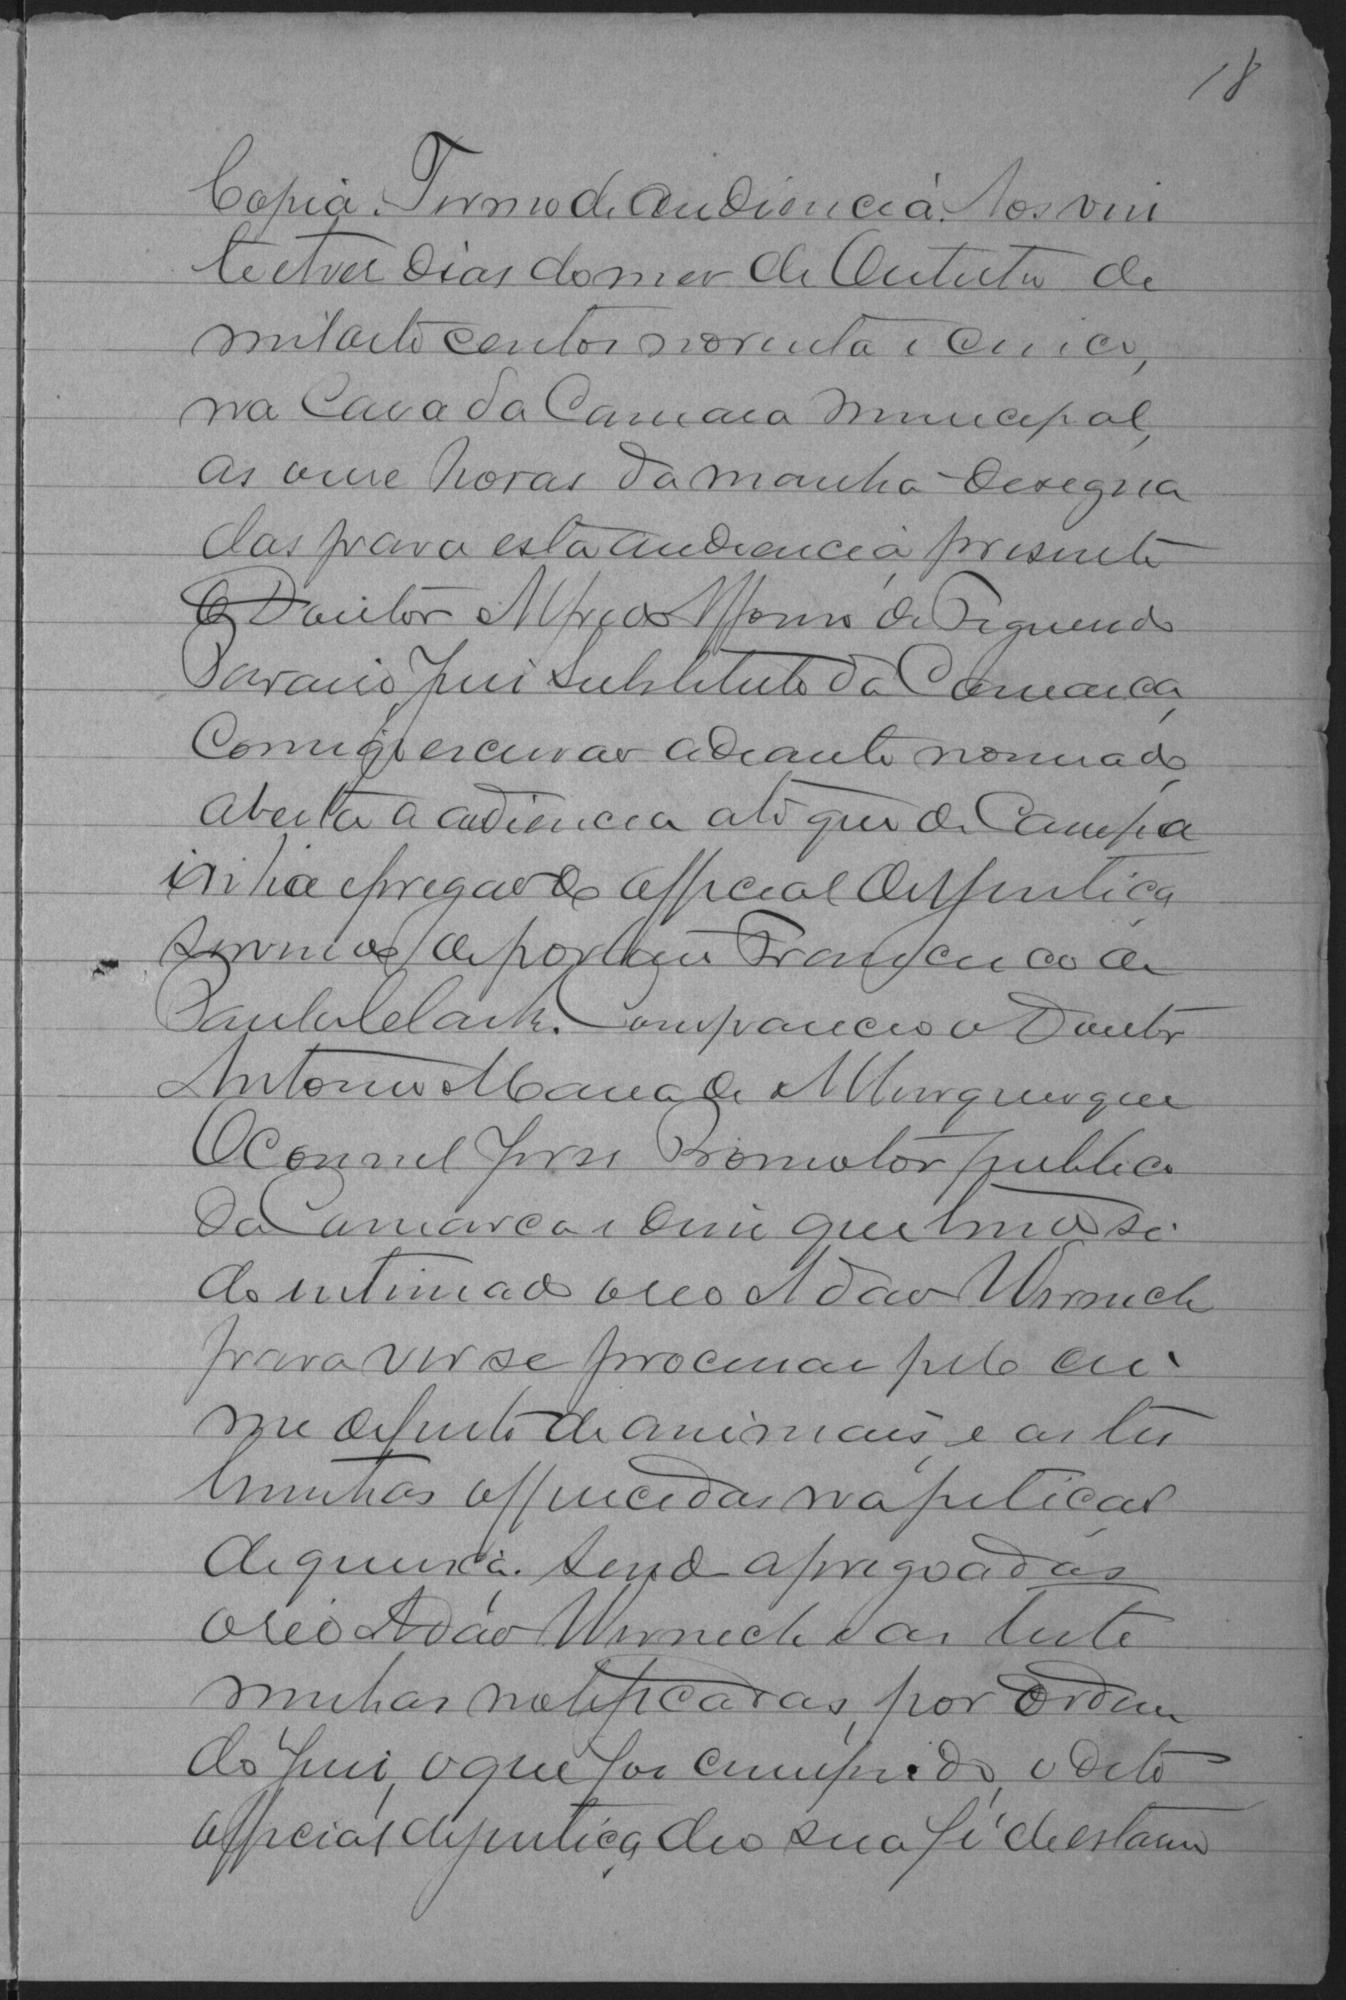 18
Copia. Termo de audiencia. Aos vin
te e tres dias do mez de Outubro de
mil oito centos noventa e cinco,
na Casa da Camara Municipal,
as onze horas da manhã designa
das para esta audiencia, presente
o Doutor Alfredo Affonso de Figueredo
Paraiso, Juiz Substituto da Comarca,
comigo escrivão adeante nomeado,
aberta a audiencia a toque de Campa
inha e pregão do official de Justiça
servindo de porteiro Francisco de
Paula Clark. Compareceo o Doutor
Antonio Maria de Albuquerque
O Connel Jersi Promotor publico
da Comarca e disse que tendo si
do intimado o reo Adão Wernech
para ver se processar pelo cri
me de furto de animais, e as tes
timunhas offerecidas na petição
de queixa. Sendo apregoadas
o reo Adão Wernech e as teste
munhas notificadas, por ordem
do Juiz, o que foi cumprido, o dito
official de justiça deo sua fé de estarem